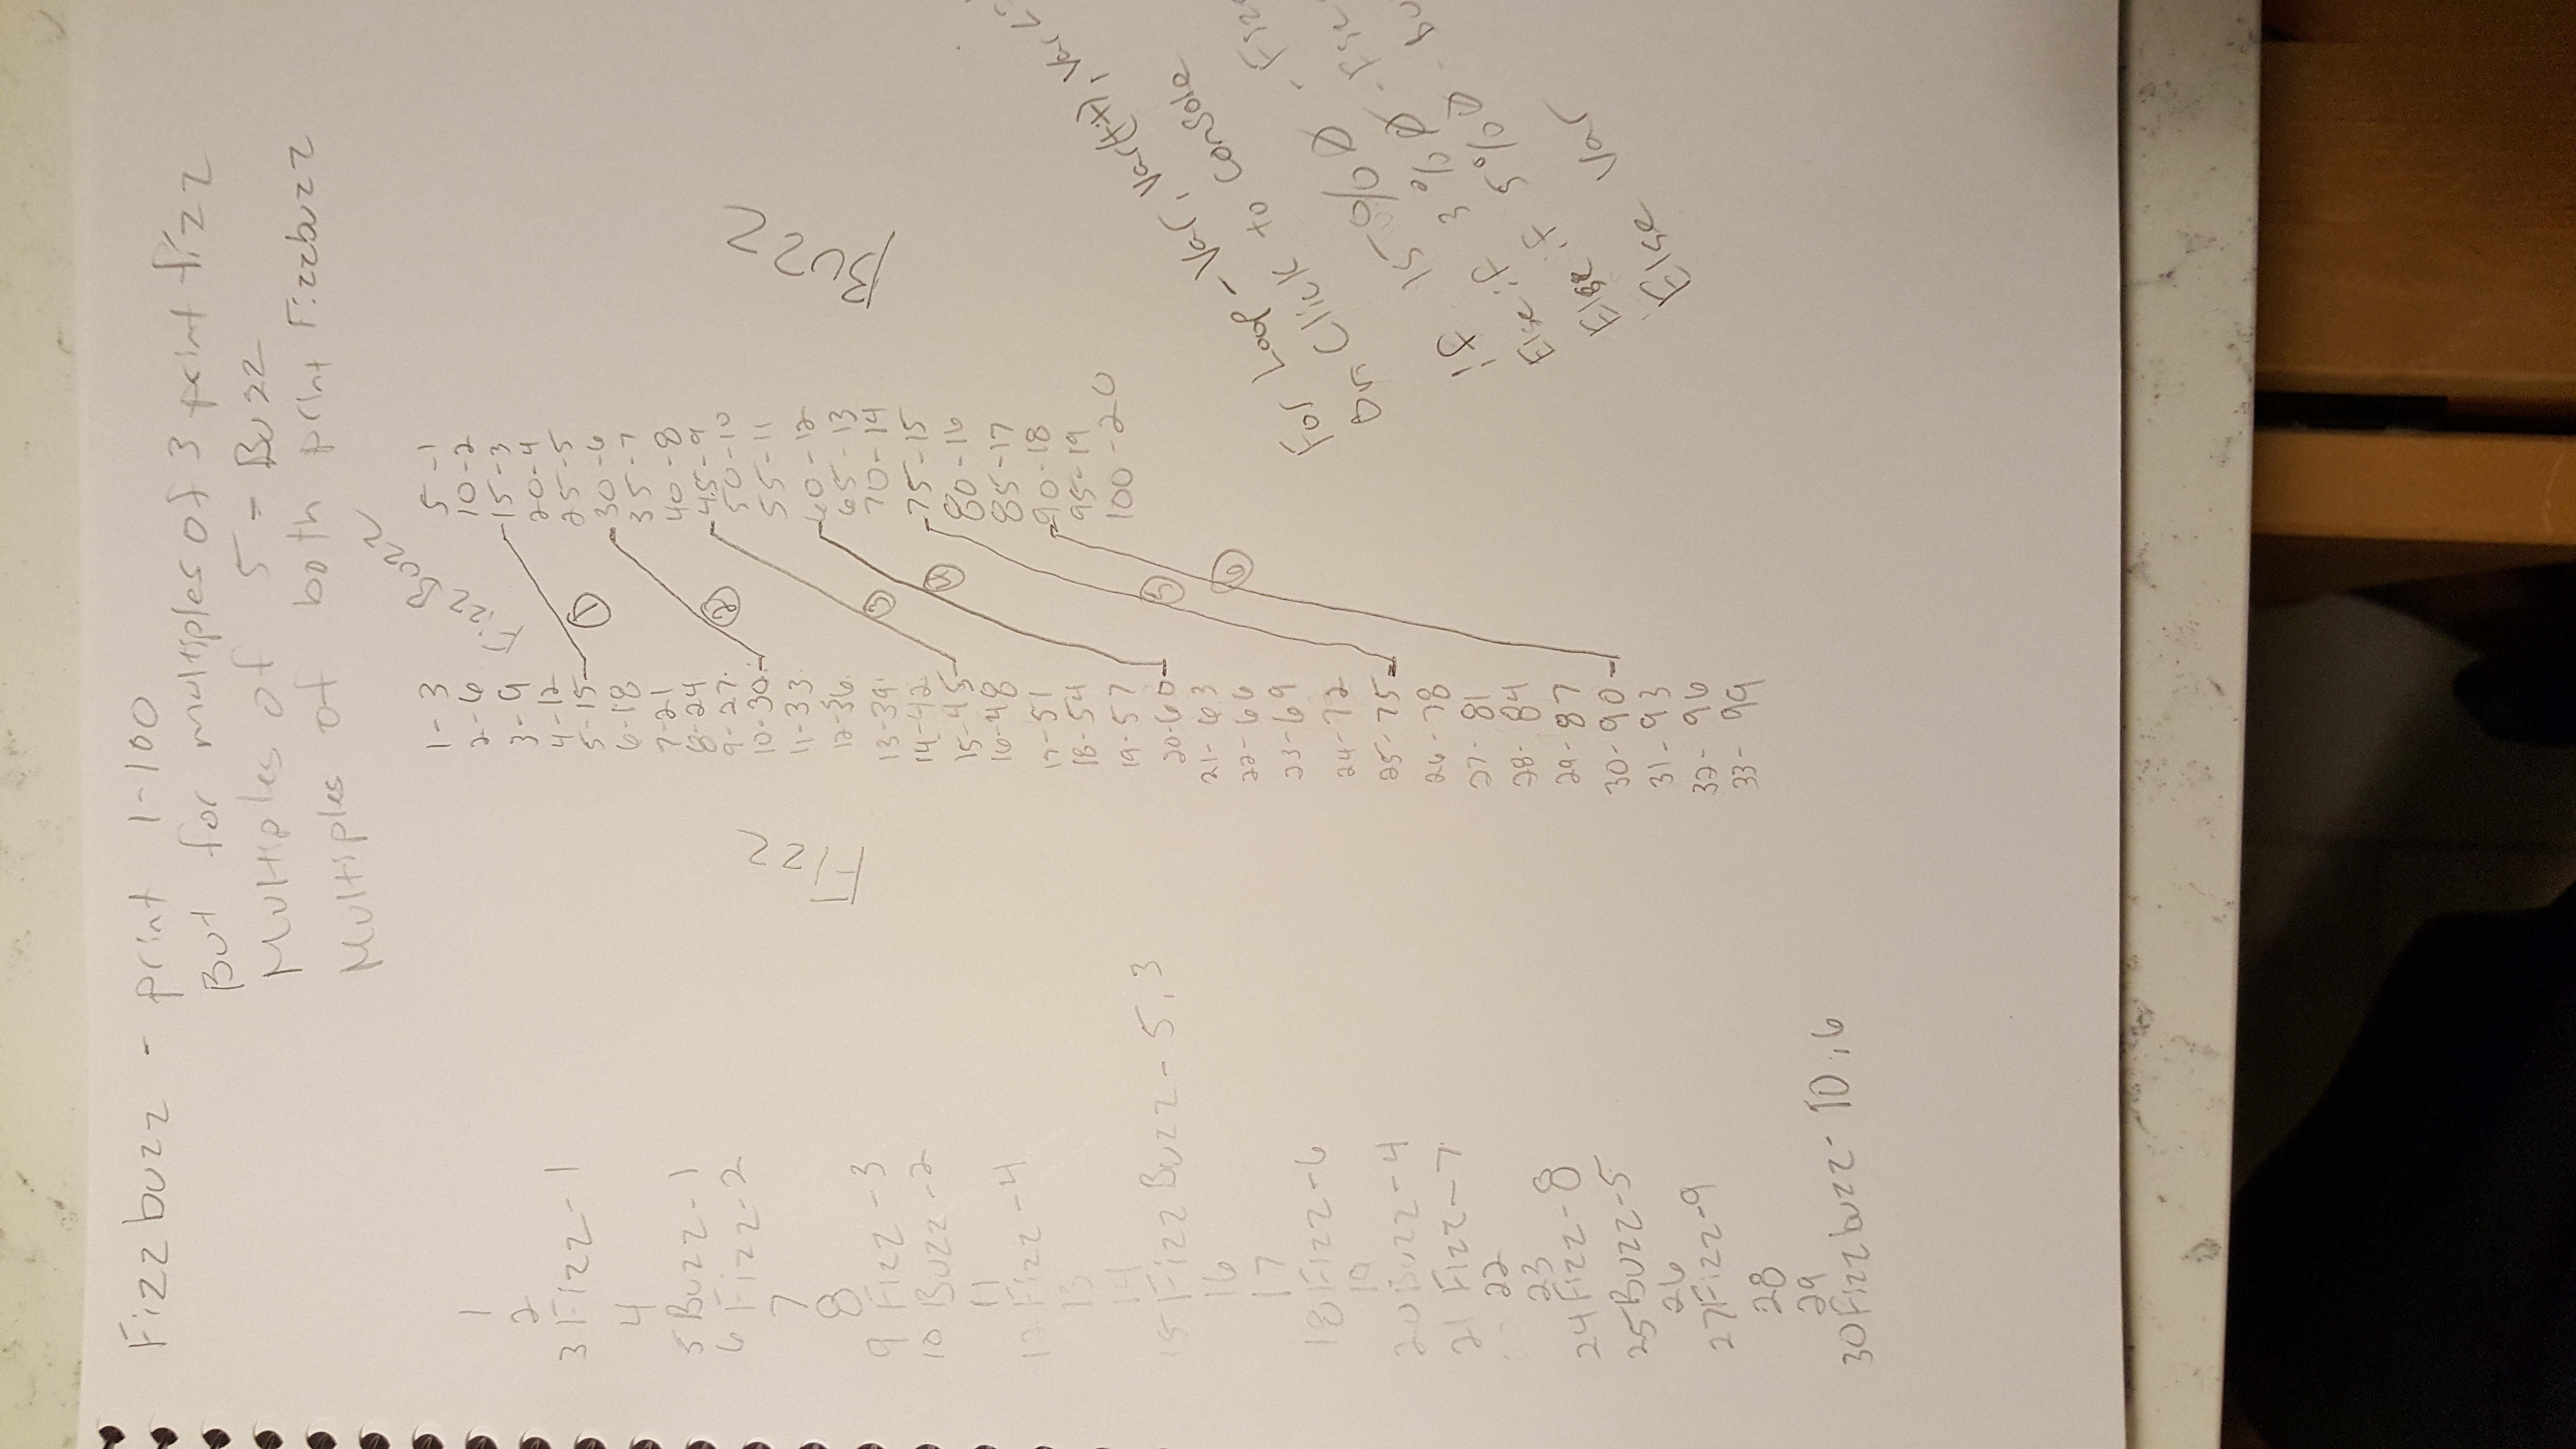 Fizzbuzz - print 1-100
But for multiples of 3 print fizz
Multiples of 5 - Buzz
Multiples of both print Fizzbuzz
1
2
3 Fizz-1
4
5 Buzz-1
6 Fizz-2
7
8
9 Fizz-3
10 Buzz-2
11
12 Fizz-4
13
14
15 Fizz Buzz-5,3
16
17
18 Fizz-6
19
20 Buzz-4
21 Fizz-7
22
23
24 Fizz-8
25 Buzz-5
26
27 Fizz-9
28
29
30 Fizzbuzz-10,6
Fizz
1-3
2-6
3-9
4-12
5-15
6-18
7-21
8-24
9-27
10-30
11-33
12-36
13-39
14-42
15-45
16-48
17-51
18-54
19-57
20-60
21-63
22-66
23-69
24-72
25-75
26-78
27-81
28-84
29-87
30-90
31-93
32-96
33-99
Fizz Buzz
1
2
3
4
5
6
5-1
10-2
15-3
20-4
25-5
30-6
35-7
40-8
45-9
50-10
55-11
60-12
65-13
70-14
75-15
80-16
85-17
90-18
95-19
100-20
Buzz
For Loop - Var, Var(++), Var<
On Click to Console
if 15%0 - Fiz
Else if 3%0 - Fiz
Else if 5%0 - Bu
Else Var